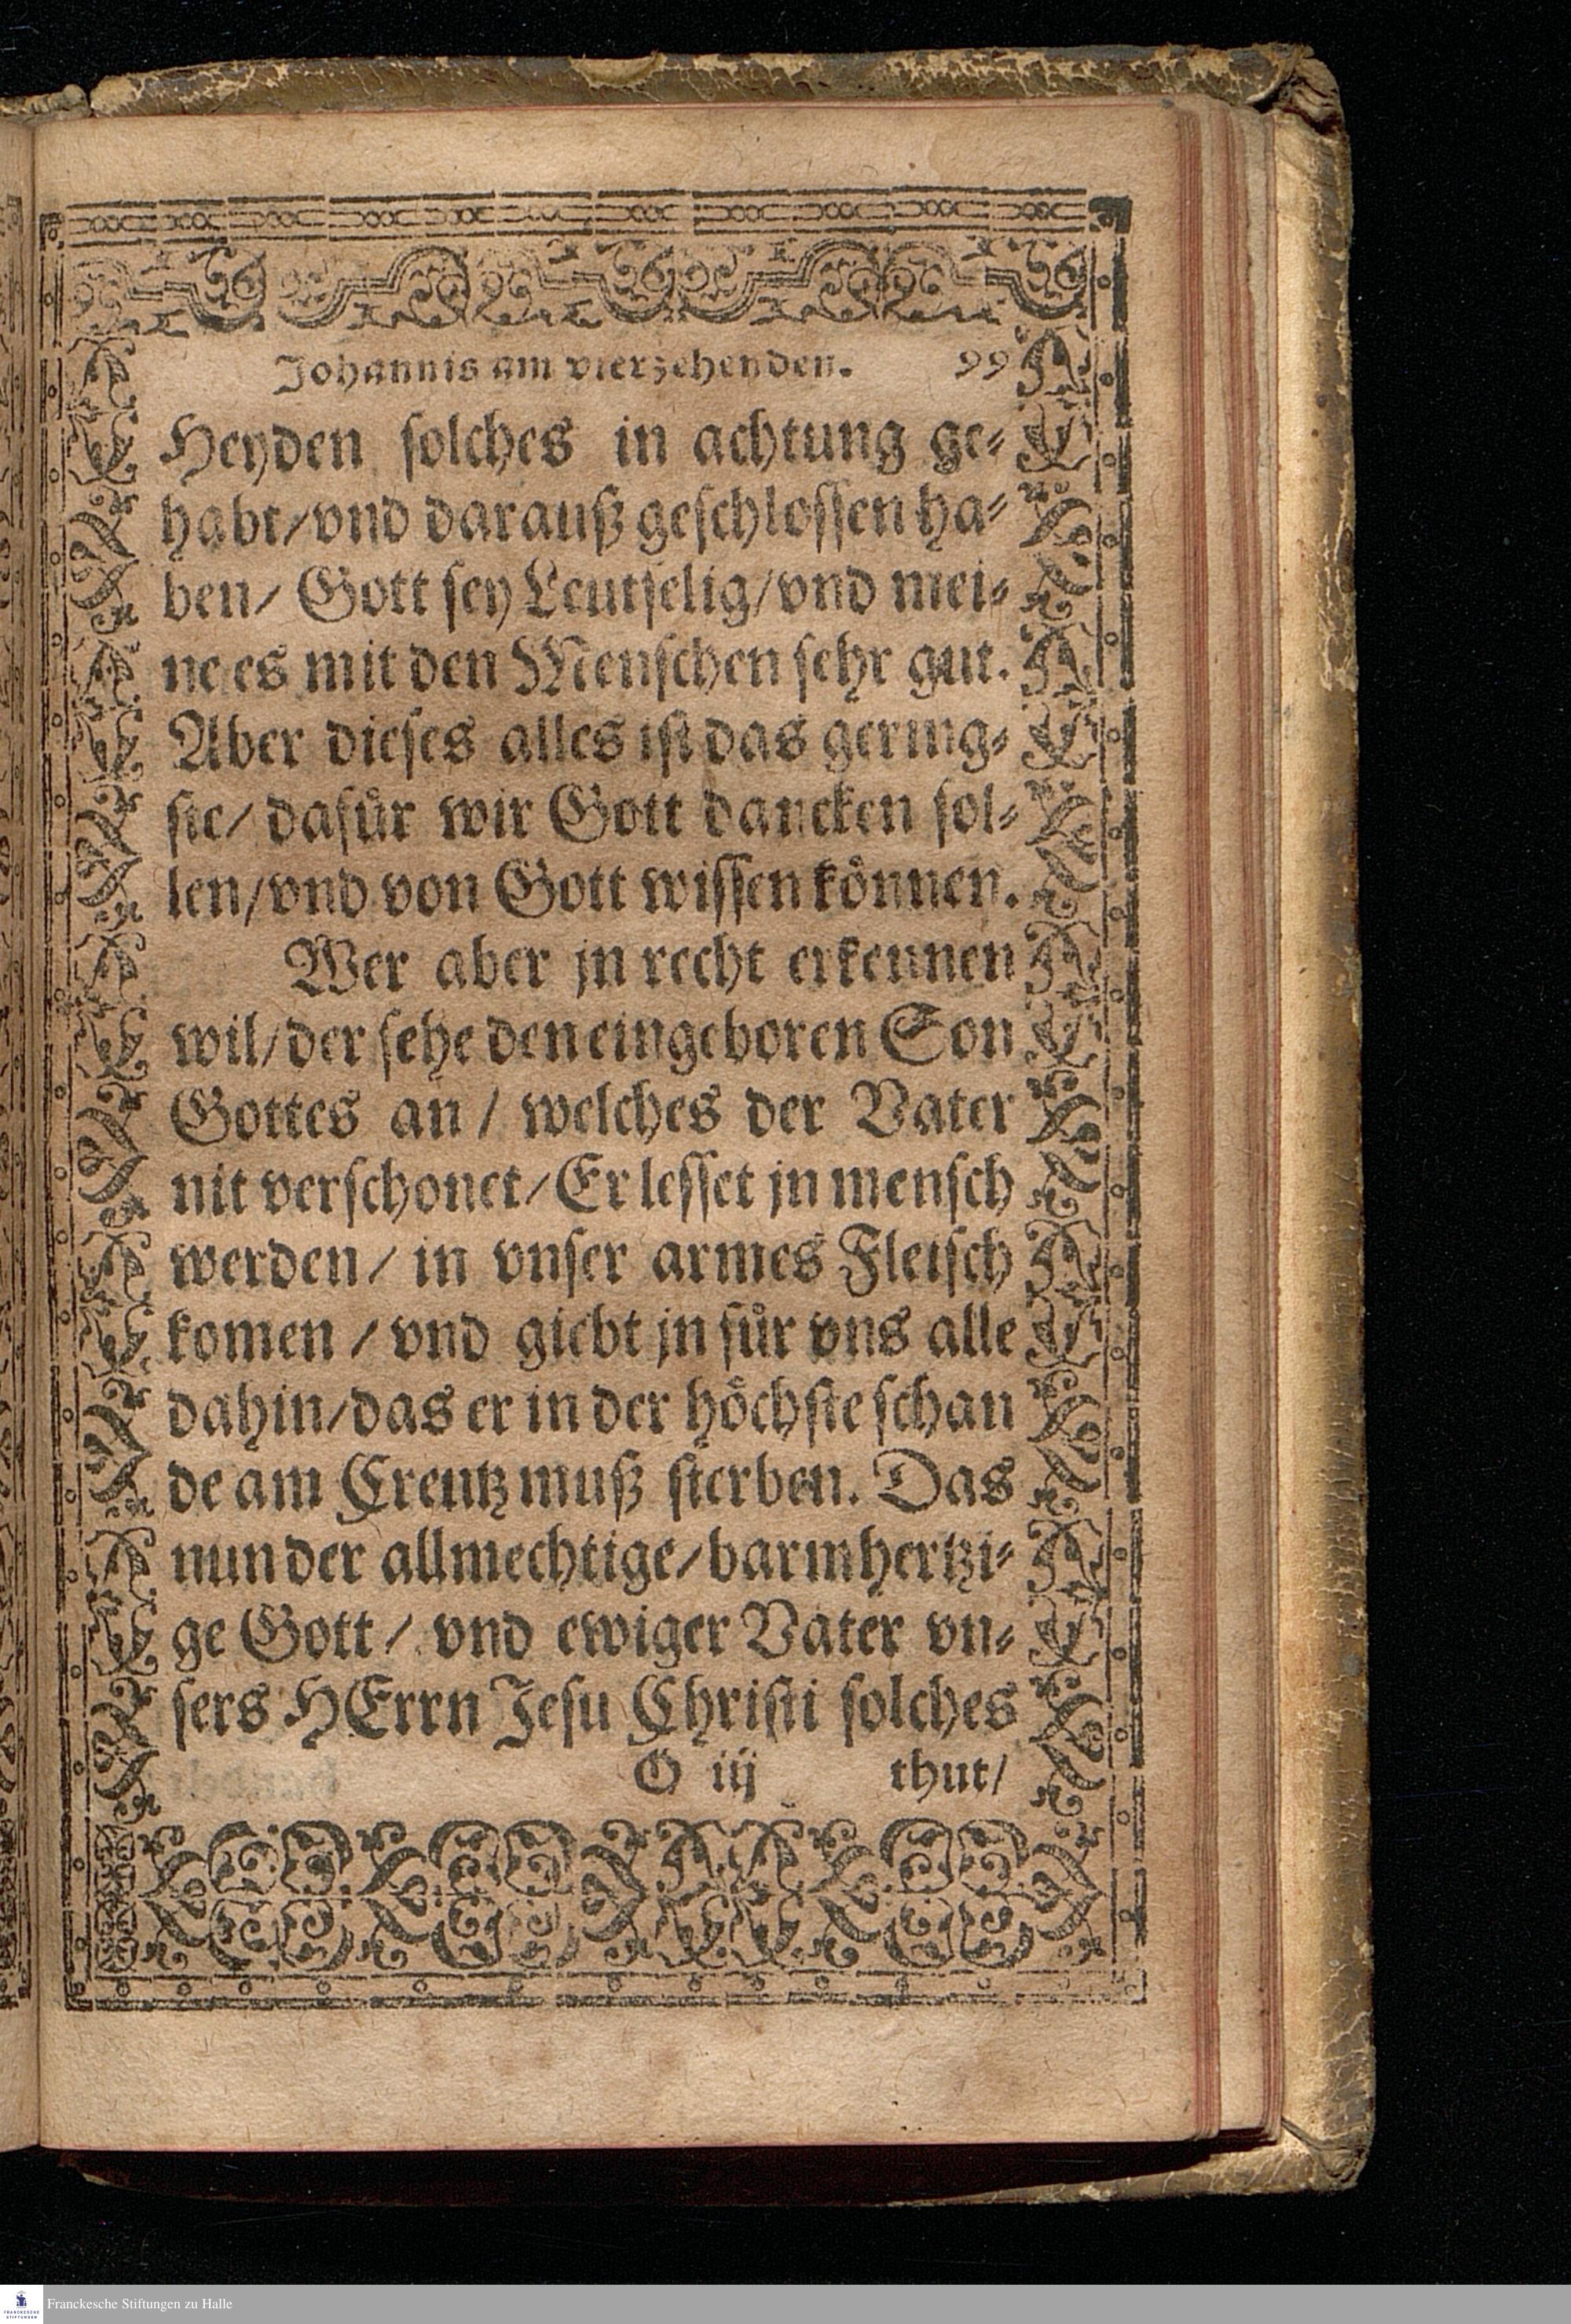 Johannis am vierzehenden. 99
Heyden solches in achtung ge⸗
habt/vnd darauß geschlossen ha⸗
ben/ Gott sey Leutselig/vnd mei⸗
ne es mit den Menschen sehr gut.
Aber dieses alles ist das gering⸗
ste/ dafuͤr wir Gott dancken sol⸗
len/vnd von Gott wissen koͤnnen.
Wer aber jn recht erkennen
wil/der sehe den eingeboren Son
Gottes an/ welches der Vater
nit verschonet/Er lesset jn mensch
werden/ in vnser armes Fleisch
komen/ vnd giebt jn fuͤr vns alle
dahin/das er in der hoͤchste schan
de am Creutz muß sterben. Das
nun der allmechtige/barmhertzi⸗
ge Gott/ vnd ewiger Vater vn⸗
sers HErrn Jesu Christi solches
G iij thut/
Franckesche Stiftungen zu Halle
FRANCKESCHE
STIFTUNGEN